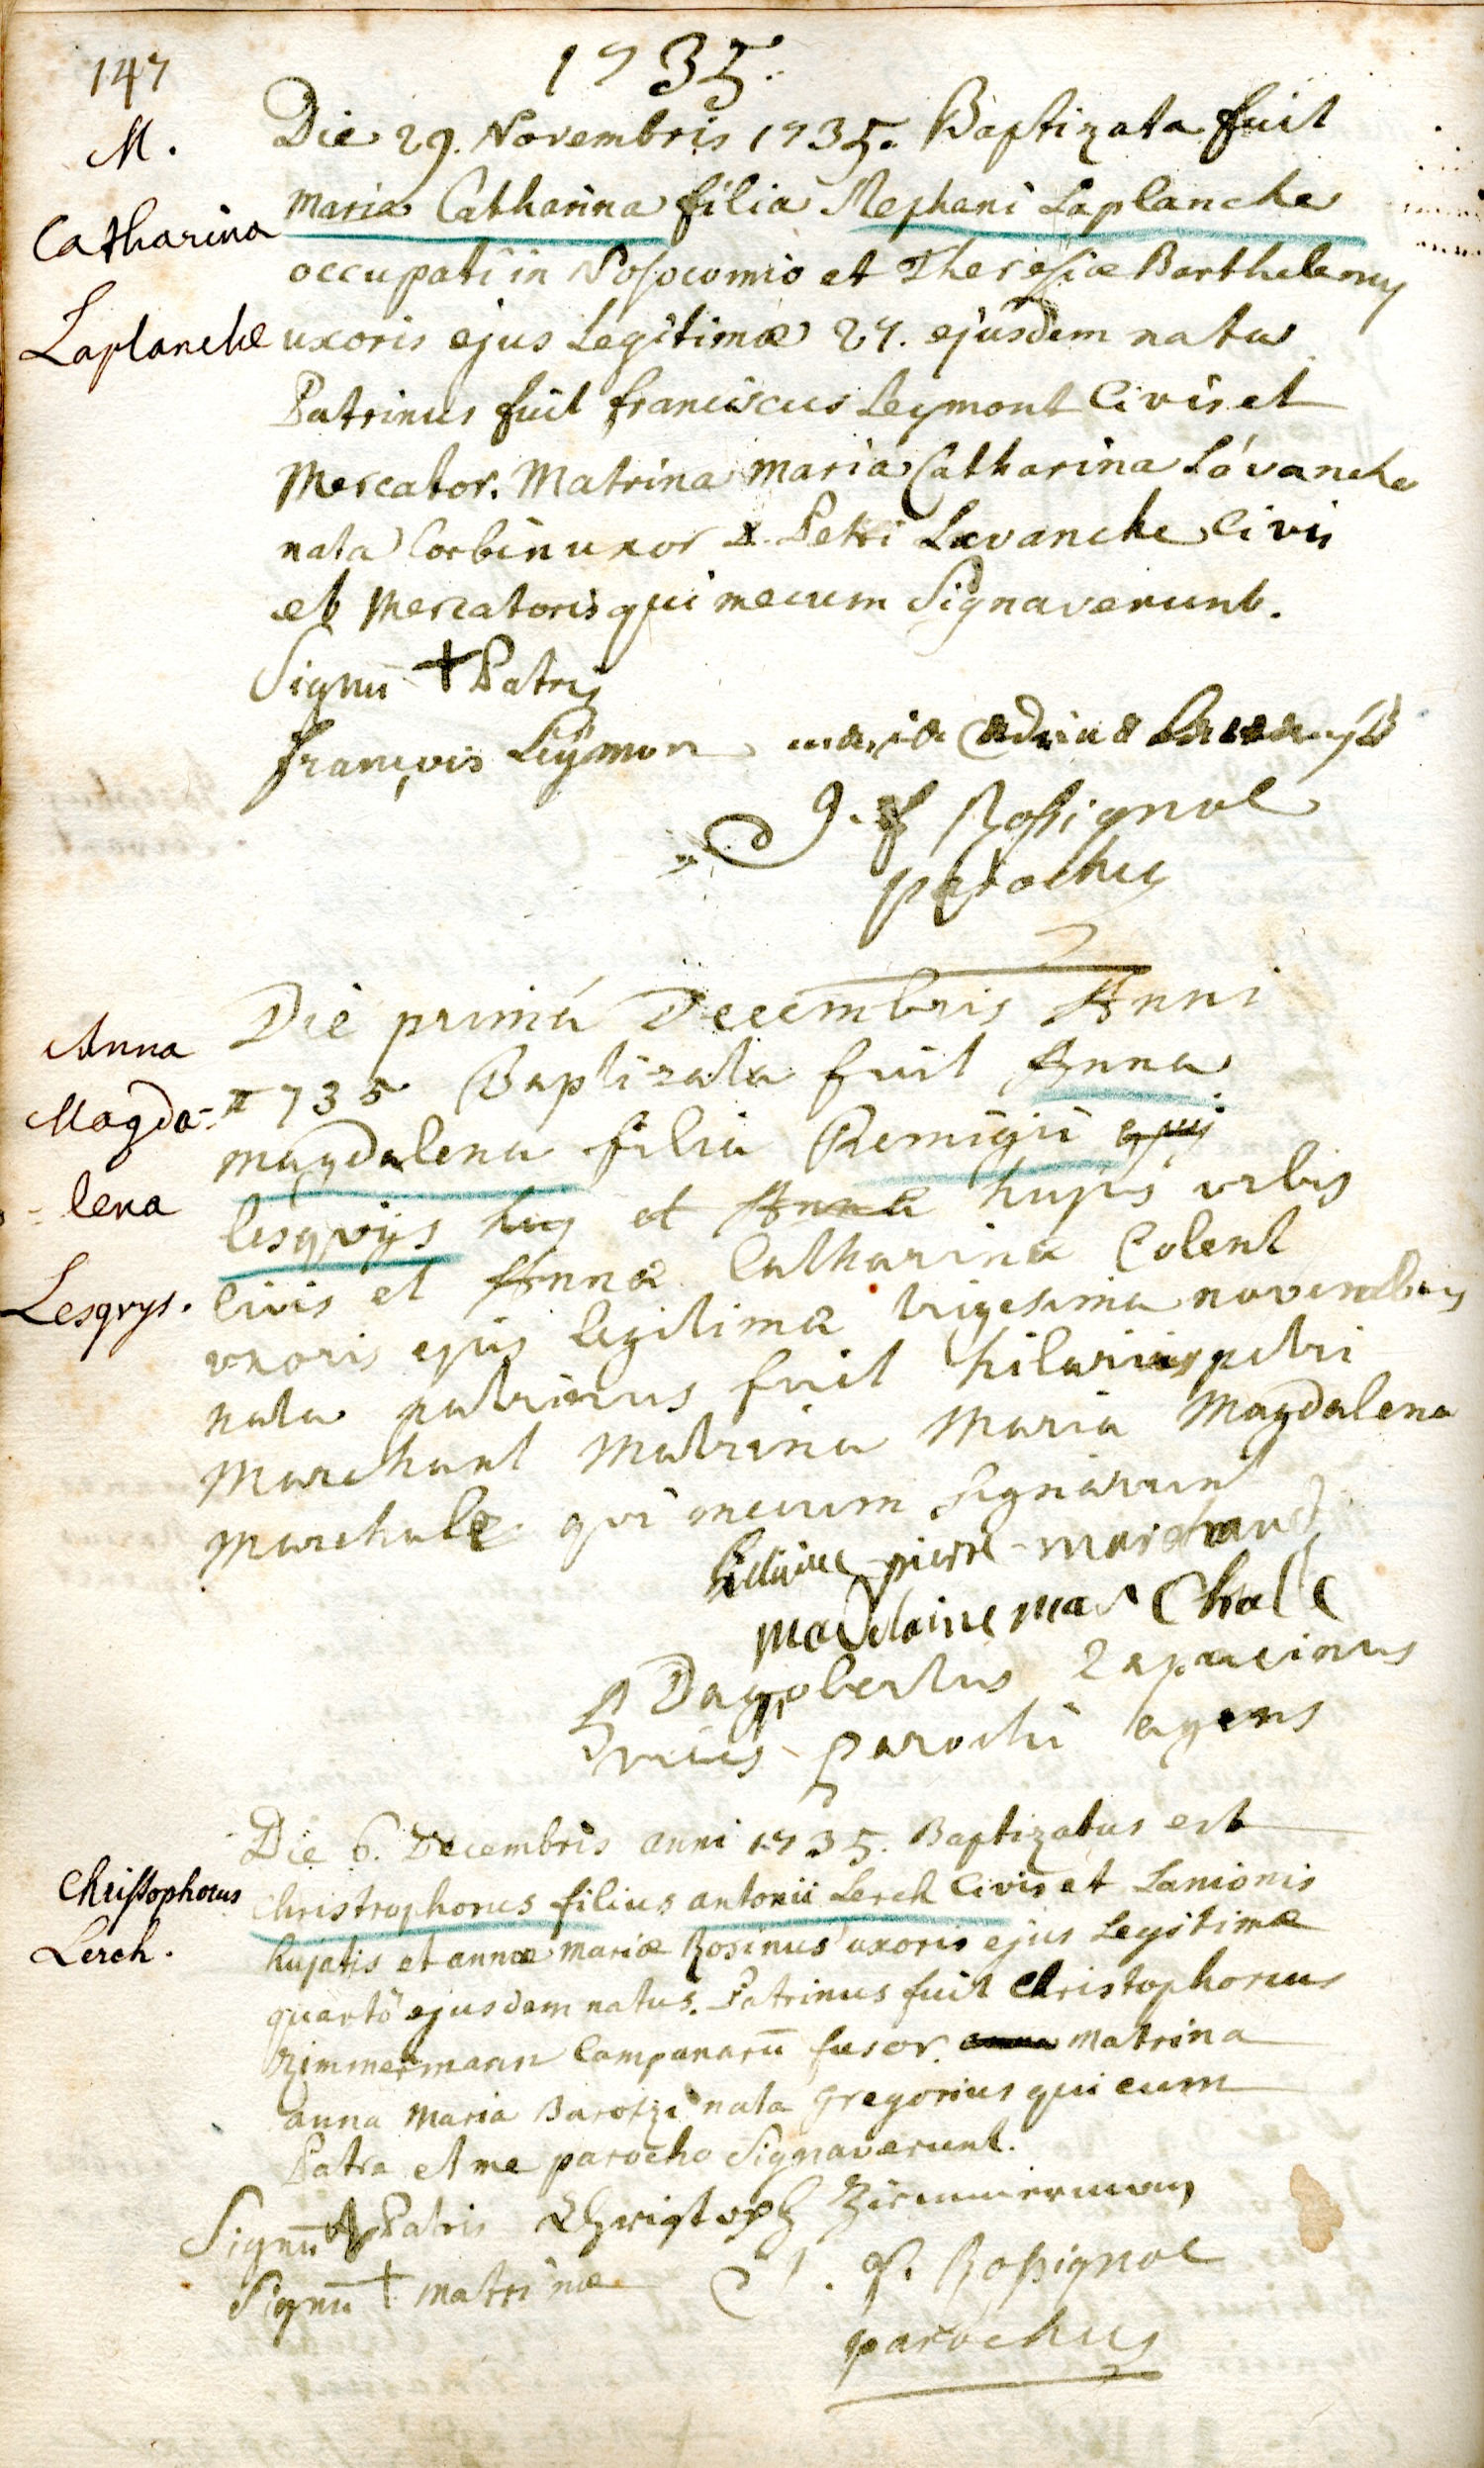 147
1735.
M.
Catharina
Laplanche
Die 29. Novembris 1735. Baptizata fuit
Maria Catharina filia Stephani Laplanche
occupati in Nosocomio et Theresiæ Barthelemy
uxoris ejus Legitimæ 27. ejusdem nata
Patrinus fuit franciscus Leymont Civis et
Mercator. Matrina Maria Catharina Lávanche
nata Corbin uxor Petri Lavanche Civis
et Mercatoris qui mecum Signaverunt.
Signū + Patris
françois Leÿmon maria
J. f Rossignol
parochus
Anna
Magda-
-lena
Lesqvys.
Die primá Decembris Anni
1735 Baptizata fuit Anna
magdalena filia Remigii ejus
lesqvÿs huj et Annæ hujus urbis
Civis et Annæ Catharinæ Colent
vxoris ejus legitimæ trigesima novembris
nata patrinus fuit hilarius petri
Marchant Matrina Maria Magdalena
Marchale qvi mecum signarunt
hillaire pierre marchant
madelaine marChalle
P Dagobertus Capucinus
vices parochi agens
Christophorus
Lerch.
Die 6. Decembris anni 1735. Baptizatus est
Christrophorus filius antonii Lerch Civis et Lanionis
hujatis et annæ Mariæ Rosinus uxoris ejus Legitimæ
quartô ejusdem natus. Patrinus fuit Christophorus
Zimmermann Campanarū fusor. Matrina
anna Maria Barozzi nata Gregorius qui cum
Patre et me parocho Signaverunt.
Signū + Patris Christoph Zimmermann
Signū + Matrinæ J. f. Rossignol
parochus